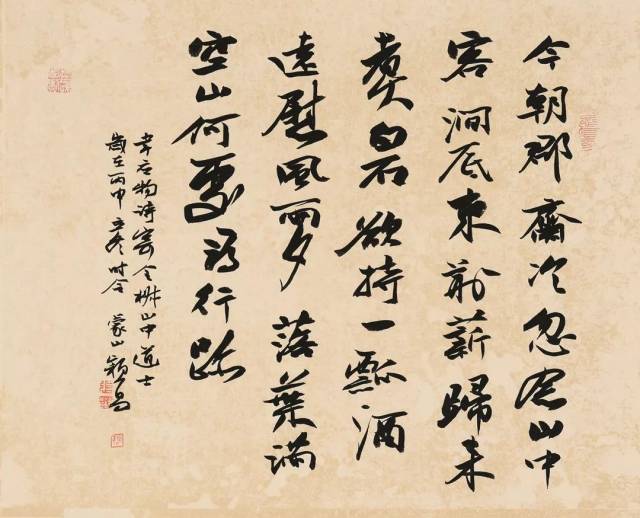 今朝郡齋冷忽念山中
客澗底束荊薪歸來
煮白石欲持一瓢酒
遠慰風雨夕落葉滿
空山何處尋行跡
韋應物詩寄全椒山中道士
歲在丙申時令蒙山